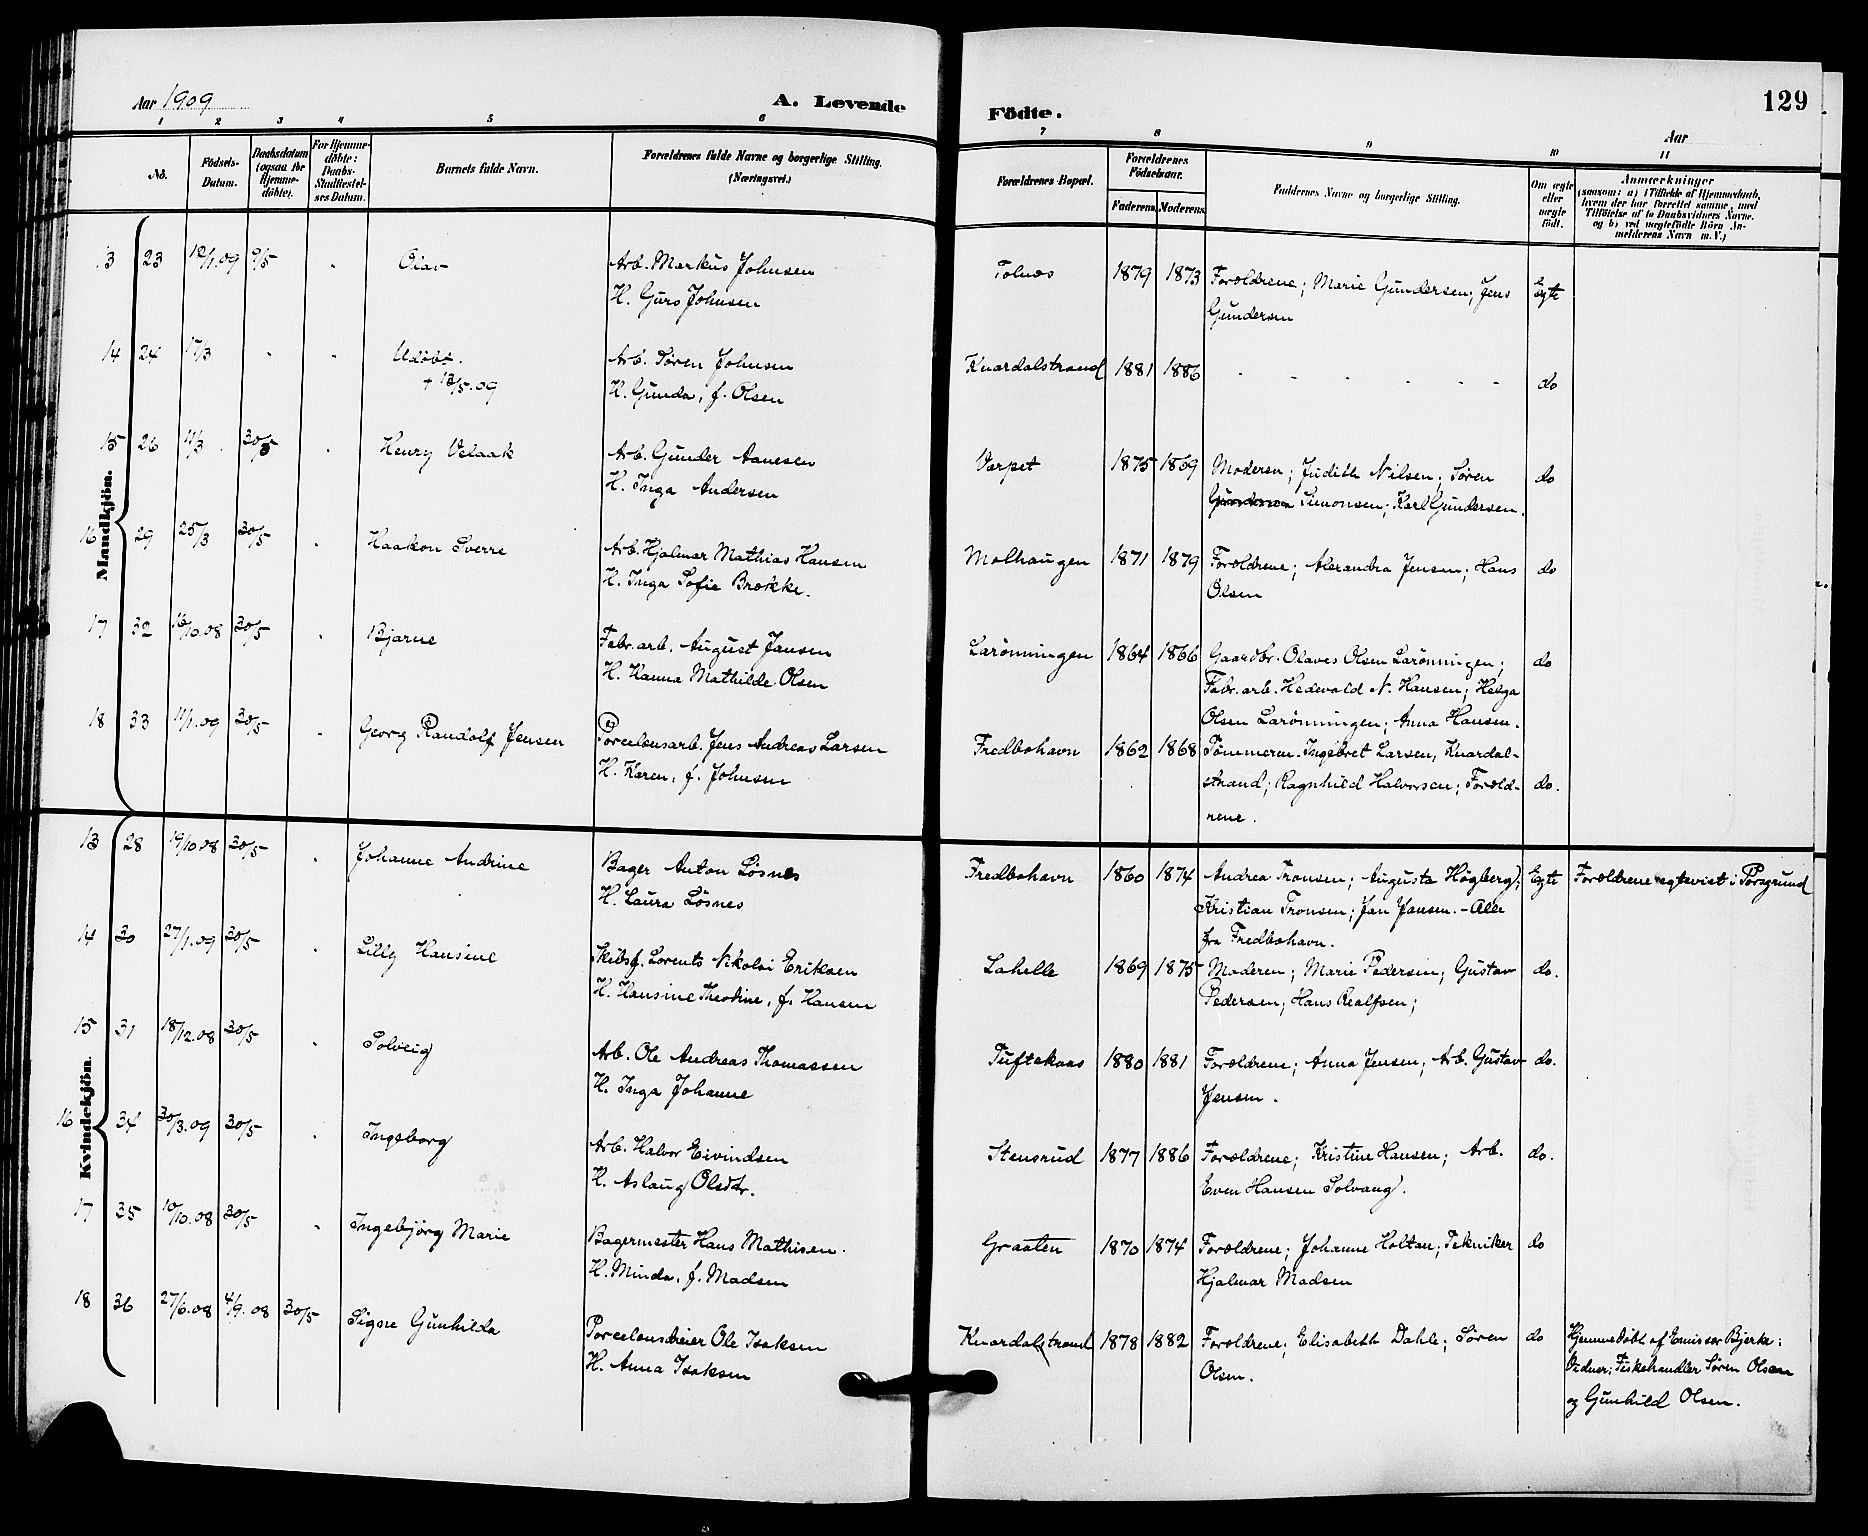 Aar 1909 A. Levende Födte. 129
Aar
1 2 3 4 5 6 7 8 9 10 11
No. Födsels-Datum. Daabsdatum (ogsaa for Hjemme-döbte). For Hjemme-döbte: Daabs-Stadfæstel-ses Datum. Barnets fulde Navn. Forældrenes fulde Navne og borgerlige Stilling. (Næringsvei.) Forældrenes Bopæl. Forældrenes Födselsaar. Faderens. Moderens. Faddernes Navne og borgerlige Stilling. Om ægte eller uægte født. Anmærkninger (saasom: a) i Tilfælde af Hjemmedaab, hvem der har forrettet samme, med Tilföielse af to Daabsvidners Navne, og b) ved uægtefödte Börn An-melderens Navn m. V.)
Mandkjön.
13 23 12/1.09 9/5 " Olav Arb. Markus Johnsen Tolnes 1879 1873 Forældrene; Marie Gundersen; Jens Egte
H. Guro Johnsen Gundersen
14 24 17/3 " " Udøbt. Arb. Søren Johnsen Knardalstrand 1881 1886 - - - - - - do
+ 13/5.09 H. Gunda, f. Olsen
15 26 11/3 30/5 " Henry Velaak Arb. Gunder Aanesen Værpet 1875 1869 Moderen; Judith Nilsen; Søren do
H. Inga Andersen Simonsen; Karl Gundersen.
16 29 25/3 30/5 " Haakon Sverre Arb. Hjalmar Mathias Hansen Molhaugen 1871 1879 Forældrene; Alexandra Jensen; Hans do
H. Inga Sofie Brokke. Olsen
17 32 16/10.08 30/5 " Bjarne Fabr. arb. August Jansen Larønningen 1864 1866 Gaardbr. Olaves Olsen Larønningen; do
H. Hanna Mathilde Olsen Fabr. arb. Hedevald N. Hansen; Helga
Olsen Larønningen; Anna Hansen.
18 33 11/1.09 30/5 " Georg Randolf Jensen Porcelænsarb. Jens Andreas Larsen Fredbohavn 1862 1868 Tømmerm. Ingebret Larsen, Knardal-
H. Karen, f. Johnsen strand; Ragnhild Halvorsen; Foræld- do.
rene.
Kvindekjön.
13 28 19/10.08 30/5 " Johanne Andrine Bager Anton Løsnes Fredbohavn 1860 1874 Andrea Tronsen; Augusta Høgberg; Egte Forældrene egteviet i Porsgrund
H. Laura Løsnes Kristian Tronsen; Jan Jansen. - Alle
fra Fredbohavn.
14 30 27/1.09 30/5 " Lilly Hansine Skibsf. Lorents Nikolai Eriksen Lahelle 1869 1875 Moderen; Marie Pedersen; Gustav do.
H. Hansine Theodine, f. Hansen Pedersen; Hans Realfsen;
15 31 18/12.08 30/5 " Solveig Arb. Ole Andreas Thomassen Tuftekaas 1880 1881 Forældrene; Anna Jensen; Arb. Gustav do.
H. Inga Johanne Jensen.
16 34 30/3.09 30/5 " Ingeborg Arb. Halvor Eivindsen Stensrud 1877 1886 Forældrene; Kristine Hansen; Arb. do.
H. Aslaug Olsdtr. Even Hansen Solvang.
17 35 10/10.08 30/5 " Ingebjørg Marie Bagermester Hans Mathisen. Graaten 1870 1874 Forældrene; Johanne Holtan; Tekniker do
H. Minda, f. Madsen Hjalmar Madsen
18 36 27/6.08 4/9.08 30/5 Signe Gunhilda Porcelænsdreier Ole Isaksen Knardalstrand 1878 1882 Forældrene; Elisabeth Dahle; Søren do Hjemmedøbt af Emissær Bjerke:
H. Anna Isaksen Olsen. Vidner; Fiskehandler Søren Olsen
og Gunhild Olsen.